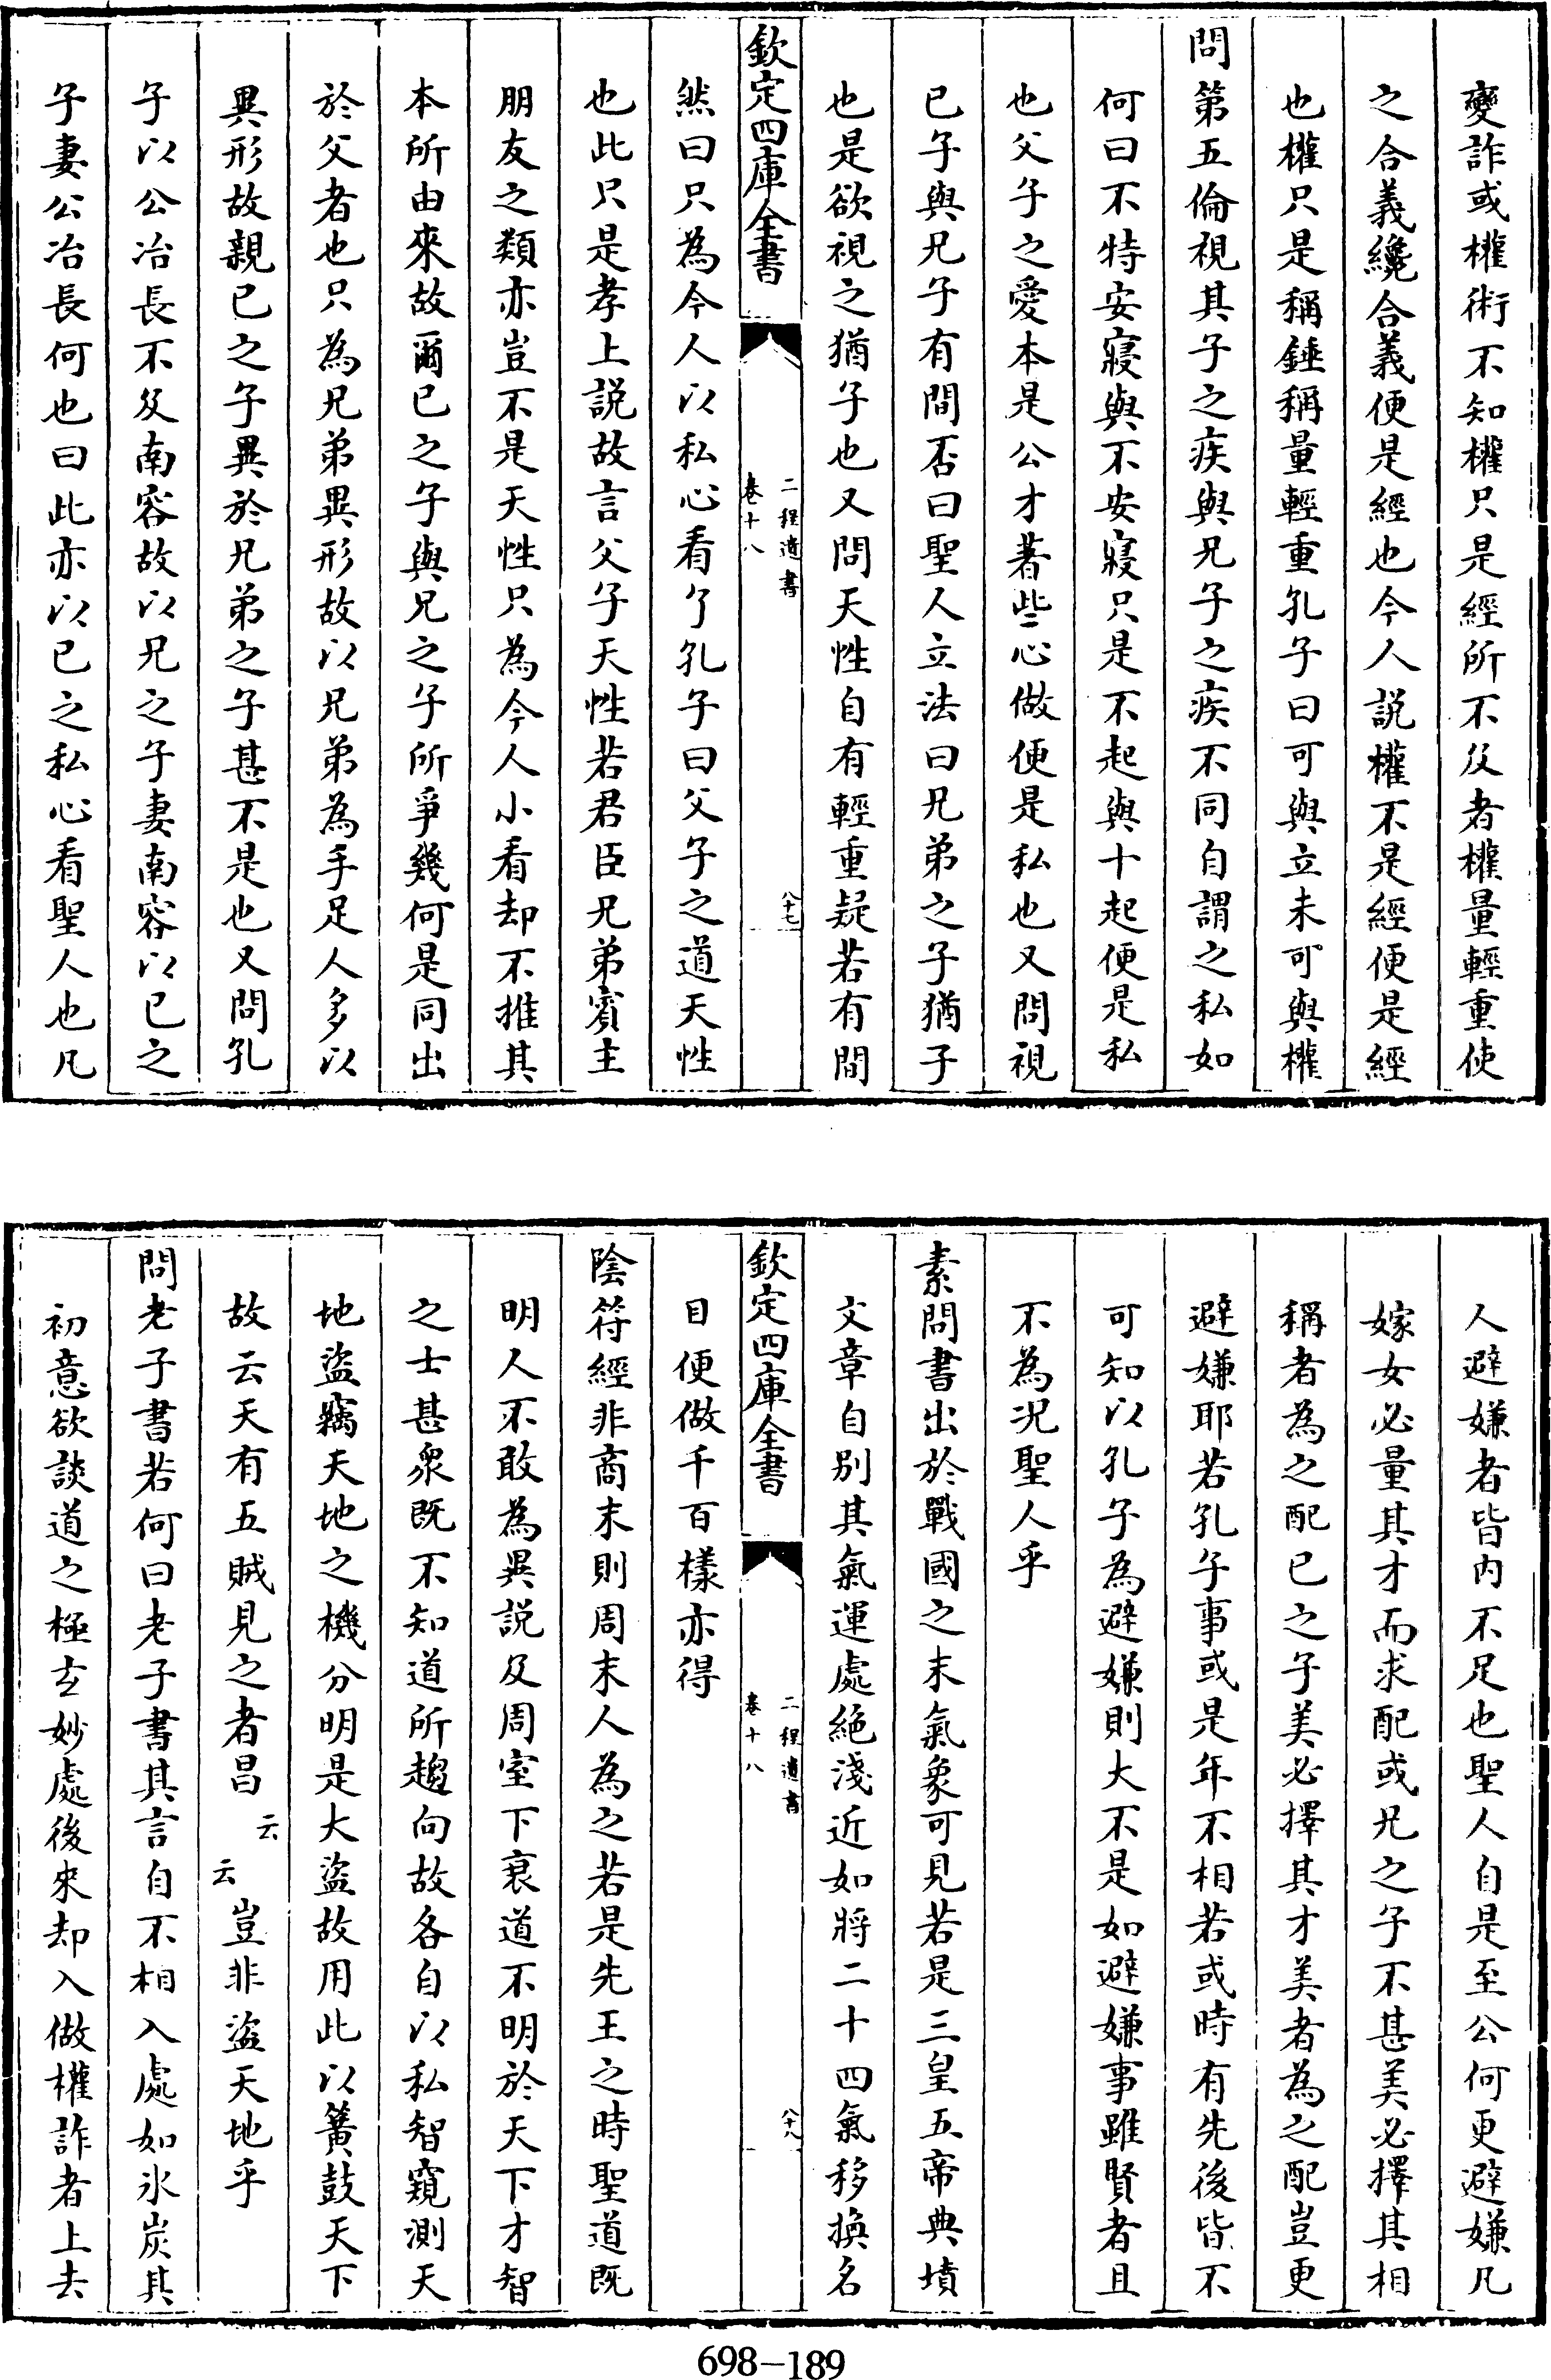 變詐或權術不知權只是經所不及者權量輕重使
之合義纔合義便是經也今人説權不是經便是經
也權只是稱錘稱量輕重孔子曰可與立未可與權
問第五倫視其子之疾與兄子之疾不同自謂之私如
何曰不特安寢與不安寢只是不起與十起便是私
也父子之愛本是公才著些心做便是私也又問視
已子與兄子有間否曰聖人立法曰兄弟之子猶子
也是欲視之猶子也又問天性自有輕重疑若有間
欽定四庫全書
二程遺書
卷十八
八十七
然曰只為今人以私心看了孔子曰父子之道天性
也此只是孝上説故言父子天性若君臣兄弟賓主
朋友之類亦豈不是天性只為今人小看却不推其
本所由來故爾已之子與兄之子所爭幾何是同出
於父者也只為兄弟異形故以兄弟為手足人多以
異形故親已之子異於兄弟之子甚不是也又問孔
子以公冶長不及南容故以兄之子妻南容以已之
子妻公冶長何也曰此亦以已之私心看聖人也凡
人避嫌者皆內不足也聖人自是至公何更避嫌凡
嫁女必量其才而求配或兄之子不甚美必擇其相
稱者為之配已之子美必擇其才美者為之配豈更
避嫌耶若孔子事或是年不相若或時有先後皆不
可知以孔子為避嫌則大不是如避嫌事雖賢者且
不為况聖人乎
素問書出於戰國之末氣象可見若是三皇五帝典墳
文章自别其氣運處絶淺近如將二十四氣移換名
欽定四庫全書
二程遺書
卷十八
八十八
目便做千百樣亦得
陰符經非商末則周末人為之若是先王之時聖道既
明人不敢為異説及周室下衰道不明於天下才智
之士甚衆既不知道所趨向故各自以私智窺測天
地盜竊天地之機分明是大盜故用此以簧鼓天下
故云天有五賊見之者昌云云豈非盜天地乎
問老子書若何曰老子書其言自不相入處如氷炭其
初意欲談道之極玄妙處後來却入做權詐者上去
698-189